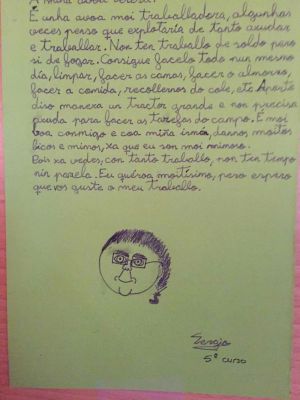 A miña avoa Teresa.
É unha avoa moi traballadora, algunhas
veces penso que explotaría de tanto axudar
e traballar. Non ten traballo de soldo pero
si de fogar. Consigue facelo todo nun mesmo
día, limpar, facer as camas, facer o almorzo,
facer a comida, recollernos do cole, etc. Aparte
diso manexa un tractor grande e non precisa
axuda para facer as tarefas do campo. É moi
boa conmigo e coa miña irmá, dannos moitos
bicos e mimos, xa que eu son moi mimoso.
Pois xa vedes, con tanto traballo, non ten tempo
nin parala. Eu quéroa moitísimo, pero espero
que vos guste o meu traballo.
Sergio
5º curso